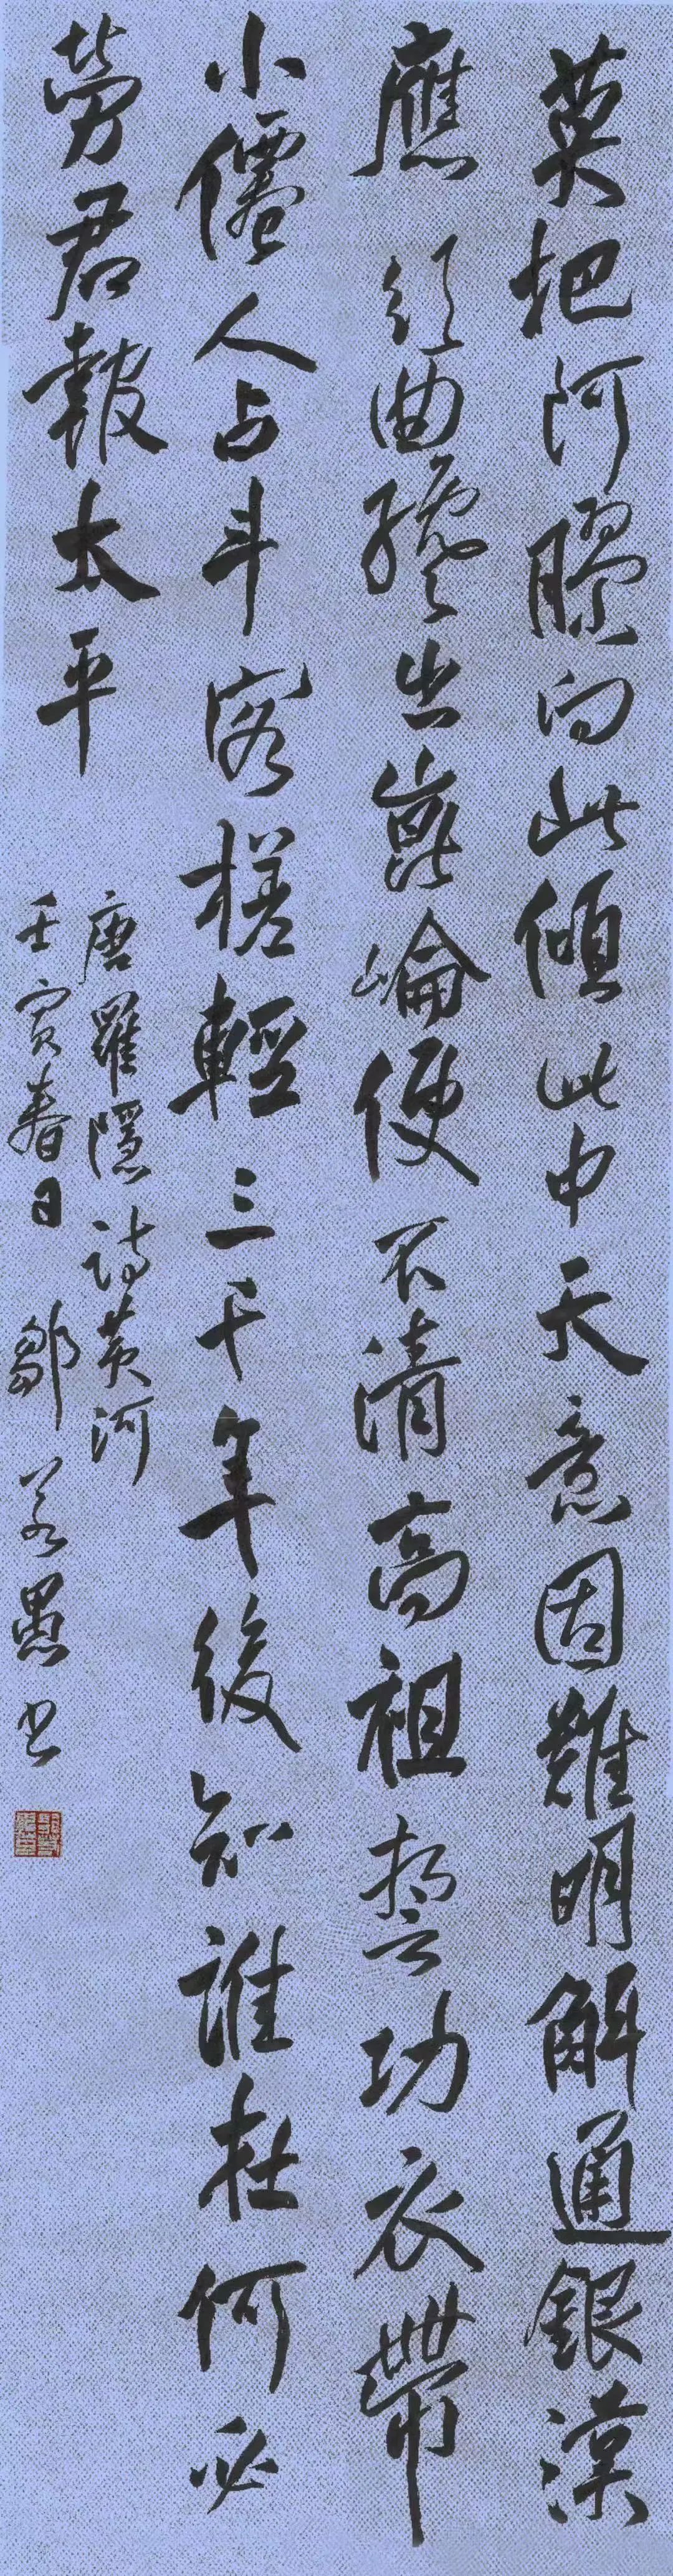 莫把阿膠向此傾此中天意固難明解通銀漢
應須曲縱出崑崙便不清高祖誓功衣帶
小僊人占斗客槎輕三千年後知誰在何必
勞君報太平
唐羅隱詩黄河
壬寅春日鄒若愚書